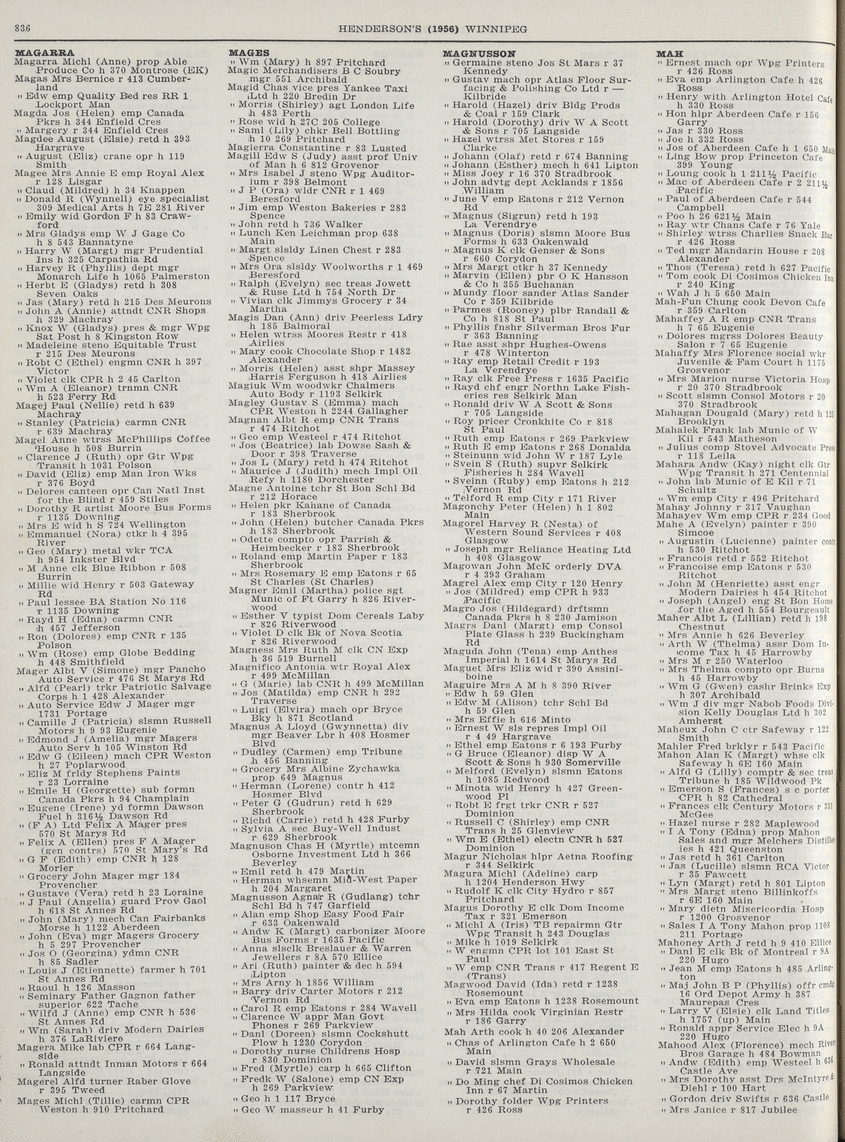 836
HENDERSON'S (1956) WINNIPEG
MAGARRA
Magarra Michl (Anne) prop Able
Produce Co h 370 Montrose (EK)
Magas Mrs Bernice r 413 Cumber-
land
" Edw emp Quality Bed res RR 1
Lockport Man
Magda Jos (Helen) emp Canada
Pkrs h 344 Enfield Cres
" Margery r 344 Enfield Cres
Magdee August (Elsie) retd h 393
Hargrave
" August (Eliz) crane opr h 119
Smith
Magee Mrs Annie E emp Royal Alex
r 128 Lisgar
" Claud (Mildred) h 34 Knappen
" Donald R (Wynnell) eye specialist
309 Medical Arts h 7E 281 River
" Emily wid Gordon F h 83 Craw-
ford
" Mrs Gladys emp W J Gage Co
h 8 543 Bannatyne
" Harry W (Margt) mgr Prudential
Ins h 325 Carpathia Rd
" Harvey R (Phyllis) dept mgr
Monarch Life h 1065 Palmerston
" Herbt E (Gladys) retd h 308
Seven Oaks
" Jas (Mary) retd h 215 Des Meurons
" John A (Annie) attndt CNR Shops
h 329 Machray
" Knox W (Gladys) pres & mgr Wpg
Sat Post h 8 Kingston Row
" Madeleine steno Equitable Trust
r 215 Des Meurons
" Robt C (Ethel) engmn CNR h 397
Victor
" Violet clk CPR h 2 45 Carlton
" Wm A (Eleanor) trnmn CNR
h 523 Ferry Rd
Magej Paul (Nellie) retd h 639
Machray
" Stanley (Patricia) carmn CNR
r 639 Machray
Magel Anne wtrss McPhillips Coffee
House h 508 Burrin
" Clarence J (Ruth) opr Gtr Wpg
Transit h 1031 Polson
" David (Eliz) emp Man Iron Wks
r 376 Boyd
" Delores canteen opr Can Natl Inst
for the Blind r 459 Stiles
" Dorothy R artist Moore Bus Forms
r 1135 Downing
" Mrs E wid h S 724 Wellington
" Emmanuel (Nora) ctkr h 4 395
River
" Geo (Mary) metal wkr TCA
h 954 Inkster Blvd
" M Anne clk Blue Ribbon r 508
Burrin
" Millie wid Henry r 503 Gateway
Rd
" Paul lessee BA Station No 116
r 1135 Downing
" Rayd H (Edna) carmn CNR
h 457 Jefferson
" Ron (Dolores) emp CNR r 135
Polson
" Wm (Rose) emp Globe Bedding
h 448 Smithfield
Mager Albt W (Simone) mgr Pancho
Auto Service r 476 St Marys Rd
" Alfd (Pearl) trkr Patriotic Salvage
Corps h 1 428 Alexander
" Auto Service Edw J Mager mgr
1731 Portage
" Camille J (Patricia) slsmn Russell
Motors h 9 93 Eugenie
" Edmond J (Amelia) mgr Magers
Auto Serv h 105 Winston Rd
" Edw G (Eileen) mach CPR Weston
h 27 Poplarwood
" Eliz M frldy Stephens Paints
r 23 Lorraine
" Emile H (Georgette) sub formn
Canada Pkrs h 94 Champlain
" Eugene (Irene) yd formn Dawson
Fuel h 316½ Dawson Rd
" (F A) Ltd Felix A Mager pres
570 St Marys Rd
" Felix A (Ellen) pres F A Mager
(gen contrs) 570 St Mary's Rd
" G F (Edith) emp CNR h 128
Morier
" Grocery John Mager mgr 184
Provencher
" Gustave (Vera) retd h 23 Loraine
" J Paul (Angelia) guard Prov Gaol
h 618 St Annes Rd
" John (Mary) mech Can Fairbanks
Morse h 1122 Aberdeen
" John (Eva) mgr Magers Grocery
h 5 297 Provencher
" Jos O (Georgina) ydmn CNR
h 85 Sadler
" Louis J (Etiennette) farmer h 701
St Annes Rd
" Raoul h 126 Masson
" Seminary Father Gagnon father
superior 622 Tache
" Wilfd J (Anne) emp CNR h 536
St Annes Rd
" Wm (Sarah) driv Modern Dairies
h 376 LaRiviere
Magera Mike lab CPR r 664 Lang-
side
" Ronald attndt Inman Motors r 664
Langside
Magerel Alfd turner Raber Glove
r 395 Tweed
Mages Michl (Tillie) carmn CPR
Weston h 910 Pritchard
MAGES
" Wm (Mary) h 897 Pritchard
Magic Merchandisers B C Soubry
mgr 551 Archibald
Magid Chas vice pres Yankee Taxi
Ltd h 220 Bredin Dr
" Morris (Shirley) agt London Life
h 483 Perth
" Rose wid h 27C 205 College
" Saml (Lily) chkr Bell Bottling
h 10 269 Pritchard
Magierra Constantine r 83 Lusted
Magill Edw S (Judy) asst prof Univ
of Man h 6 812 Grovenor
" Mrs Isabel J steno Wpg Auditor-
ium r 398 Belmont
" J P (Ora) wldr CNR r 1 469
Beresford
" Jim emp Weston Bakeries r 283
Spence
" John retd h 736 Walker
" Lunch Ken Leichman prop 638
Main
" Margt slsldy Linen Chest r 283
Spence
" Mrs Ora slsldy Woolworths r 1 469
Beresford
" Ralph (Evelyn) sec treas Jowett
& Ruse Ltd h 754 North Dr
" Vivian clk Jimmys Grocery r 34
Martha
Magis Dan (Ann) driv Peerless Ldry
h 185 Balmoral
" Helen wtrss Moores Restr r 418
Airlies
" Mary cook Chocolate Shop r 1482
Alexander
" Morris (Helen) asst shpr Massey
Harris Ferguson h 418 Airlies
Magiuk Wm woodwkr Chalmers
Auto Body r 1193 Selkirk
Magley Gustav S (Emma) mach
CPR Weston h 2244 Gallagher
Magnan Albt R emp CNR Trans
r 474 Ritchot
" Geo emp Westeel r 474 Ritchot
" Jos (Beatrice) lab Dowse Sash &
Door r 398 Traverse
" Jos L (Mary) retd h 474 Ritchot
" Maurice J (Judith) mech Impl Oil
Refy h 1180 Dorchester
Magne Antoine tchr St Bon Schl Bd
r 212 Horace
" Helen pkr Kahane of Canada
r 183 Sherbrook
" John (Helen) butcher Canada Pkrs
h 183 Sherbrook
" Odette compto opr Parrish &
Heimbecker r 183 Sherbrook
" Roland emp Martin Paper r 183
Sherbrook
" Mrs Rosemary E emp Eatons r 65
St Charles (St Charles)
Magner Emil (Martha) police sgt
Munic of Ft Garry h 826 River-
wood
" Esther V typist Dom Cereals Laby
r 826 Riverwood
" Violet D clk Bk of Nova Scotia
r 826 Riverwood
Magness Mrs Ruth M clk CN Exp
h 36 519 Burnell
Magnifico Antonia wtr Royal Alex
r 499 McMillan
" G (Marie) lab CNR h 499 McMillan
" Jos (Matilda) emp CNR h 292
Traverse
" Luigi (Elvira) mach opr Bryce
Bky h 871 Scotland
Magnus A Lloyd (Gwynnetta) div
mgr Beaver Lbr h 408 Hosmer
Blvd
" Dudley (Carmen) emp Tribune
h 456 Banning
" Grocery Mrs Albine Zychawka
prop 649 Magnus
" Herman (Lorene) contr h 412
Hosmer Blvd
" Peter G (Gudrun) retd h 629
Sherbrook
" Richd (Carrie) retd h 428 Furby
" Sylvia A sec Buy-Well Indust
r 629 Sherbrook
Magnuson Chas H (Myrtle) mtcemn
Osborne Investment Ltd h 366
Beverley
" Emil retd h 479 Martin
" Herman whsemn Mid-West Paper
h 204 Margaret
Magnusson Agnar R (Gudlang) tchr
Schl Bd h 747 Garfield
" Alan emp Shop Easy Food Fair
r 633 Oakenwald
" Andw K (Margt) carbonizer Moore
Bus Forms r 1635 Pacific
" Anna slsclk Breslauer & Warren
Jewellers r 8A 570 Ellice
" Ari (Ruth) painter & dec h 594
Lipton
" Mrs Arny h 1856 William
" Barry driv Carter Motors r 212
Vernon Rd
" Carol R emp Eatons r 284 Wavell
" Clarence W appr Man Govt
Phones r 269 Parkview
" Danl (Doreen) slsmn Cockshutt
Plow h 1230 Corydon
" Dorothy nurse Childrens Hosp
r 830 Dominion
" Fred (Myrtle) carp h 665 Clifton
" Fredk W (Salone) emp CN Exp
h 269 Parkview
" Geo h 1 117 Bryce
" Geo W masseur h 41 Furby
MAGNUSSON
" Germaine steno Jos St Mars r 37
Kennedy
" Gustav mach opr Atlas Floor Sur-
facing & Polishing Co Ltd r —
Kilbride
" Harold (Hazel) driv Bldg Prods
& Coal r 159 Clark
" Harold (Dorothy) driv W A Scott
& Sons r 705 Langside
" Hazel wtrss Met Stores r 159
Clarke
" Johann (Olaf) retd r 674 Banning
" Johann (Esther) mech h 641 Lipton
" Miss Joey r 16 370 Stradbrook
" John advtg dept Acklands r 1856
William
" June V emp Eatons r 212 Vernon
Rd
" Magnus (Sigrun) retd h 193
La Verendrye
" Magnus (Doris) slsmn Moore Bus
Forms h 633 Oakenwald
" Magnus K clk Genser & Sons
r 660 Corydon
" Mrs Margt ctkr h 37 Kennedy
" Marvin (Ellen) pbr O K Hansson
& Co h 355 Buchanan
" Mundy floor sander Atlas Sander
Co r 359 Kilbride
" Parmes (Rooney) plbr Randall &
Co h 818 St Paul
" Phyllis fnshr Silverman Bros Fur
r 363 Banning
" Rae asst shpr Hughes-Owens
r 478 Winterton
" Ray emp Retail Credit r 193
La Verendrye
" Ray clk Free Press r 1635 Pacific
" Rayd chf engr Northn Lake Fish-
eries res Selkirk Man
" Ronald driv W A Scott & Sons
r 705 Langside
" Roy pricer Cronkhite Co r 818
St Paul
" Ruth emp Eatons r 269 Parkview
" Ruth E emp Eatons r 268 Donalda
" Steinunn wid John W r 187 Lyle
" Svein S (Ruth) supvr Selkirk
Fisheries h 284 Wavell
" Sveinn (Ruby) emp Eatons h 212
Vernon Rd
" Telford R emp City r 171 River
Magonchy Peter (Helen) h 1 802
Main
Magorel Harvey R (Nesta) of
Western Sound Services r 408
Glasgow
" Joseph mgr Reliance Heating Ltd
h 408 Glasgow
Magowan John McK orderly DVA
r 4 393 Graham
Magrel Alex emp City r 120 Henry
" Jos (Mildred) emp CPR h 933
Pacific
Magro Jos (Hildegard) drftsmn
Canada Pkrs h 8 230 Jamison
Magrs Danl (Margt) emp Consol
Plate Glass h 239 Buckingham
Rd
Maguda John (Tena) emp Anthes
Imperial h 1614 St Marys Rd
Maguet Mrs Eliz wid r 390 Assini-
boine
Maguire Mrs A M h 8 390 River
" Edw h 59 Glen
" Edw M (Alison) tchr Schl Bd
h 59 Glen
" Mrs Effie h 616 Minto
" Ernest W sls repres Impl Oil
r 4 49 Hargrave
" Ethel emp Eatons r 6 193 Furby
" G Bruce (Eleanor) disp W A
Scott & Sons h 930 Somerville
" Melford (Evelyn) slsmn Eatons
h 1085 Redwood
" Minota wid Henry r 427 Green-
wood Pl
" Robt E frgt trkr CNR r 527
Dominion
" Russell C (Shirley) emp CNR
Trans h 25 Glenview
" Wm E (Ethel) electn CNR h 527
Dominion
Magur Nicholas hlpr Aetna Roofing
r 344 Selkirk
Magura Michl (Adeline) carp
h 1204 Henderson Hwy
" Rudolf K clk City Hydro r 857
Pritchard
Magus Dorothy E clk Dom Income
Tax r 321 Emerson
" Michl A (Iris) TB repairmn Gtr
Wpg Transit h 243 Douglas
" Mike h 1019 Selkirk
" W engmn CPR lot 101 East St
Paul
" W emp CNR Trans r 417 Regent E
(Trans)
Magwood David (Ida) retd r 1238
Rosemount
" Eva emp Eatons h 1238 Rosemount
" Mrs Hilda cook Virginian Restr
r 186 Garry
Mah Arth cook h 40 206 Alexander
" Chas of Arlington Cafe h 2 650
Main
" David slsmn Grays Wholesale
r 721 Main
" Do Ming chef Di Cosimos Chicken
Inn r 67 Martin
" Dorothy folder Wpg Printers
r 426 Ross
MAH
" Ernest mach opr Wpg Printers
r 426 Ross
" Eva emp Arlington Cafe h 426
Ross
" Henry with Arlington Hotel Cafe
h 330 Ross
" Hon hlpr Aberdeen Cafe r 156
Garry
" Jas r 330 Ross
" Joe h 332 Ross
" Jos of Aberdeen Cafe h 1 650 Main
" Ling Bow prop Princeton Cafe
399 Young
" Loung cook h 1 211½ Pacific
" Mac of Aberdeen Cafe r 2 211½
Pacific
" Paul of Aberdeen Cafe r 544
Campbell
" Poo h 26 621½ Main
" Ray wtr Chans Cafe r 76 Yale
" Shirley wtrss Charlies Snack Bar
r 426 Ross
" Ted mgr Mandarin House r 208
Alexander
" Thos (Teresa) retd h 627 Pacific
" Tom cook Di Cosimos Chicken Inn
r 240 King
" Wah J h 5 650 Main
Mah-Fun Chung cook Devon Cafe
r 359 Carlton
Mahaffey A R emp CNR Trans
h 7 65 Eugenie
" Dolores mgrss Dolores Beauty
Salon r 7 65 Eugenie
Mahaffy Mrs Florence social wkr
Juvenile & Fam Court h 1175
Grosvenor
" Mrs Marion nurse Victoria Hosp
r 20 370 Stradbrook
" Scott slsmn Consol Motors r 20
370 Stradbrook
Mahagan Dougald (Mary) retd h
Brooklyn
Mahalek Frank lab Munic of W
Kil r 543 Matheson
" Julius comp Stovel Advocate Press
r 118 Leila
Mahara Andw (Kay) night clk Gtr
Wpg Transit h 271 Centennial
" John lab Munic of E Kil r 71
Schultz
" Wm emp City r 496 Pritchard
Mahay Johnny r 317 Vaughan
Mahayev Wm emp CPR r 234 Good
Mahe A (Evelyn) painter r 390
Simcoe
" Augustin (Lucienne) painter contr
h 530 Ritchot
" Francois retd r 552 Ritchot
" Francoise emp Eatons r 530
Ritchot
" John M (Henriette) asst engr
Modern Dairies h 454 Ritchot
" Joseph (Angel) eng St Bon Home
for the Aged h 554 Bourgeault
Maher Albt L (Lillian) retd h 198
Chestnut
" Mrs Annie h 626 Beverley
" Arth W (Thelma) assr Dom In-
come Tax h 45 Harrowby
" Mrs M r 250 Waterloo
" Mrs Thelma compto opr Burns
h 45 Harrowby
" Wm G (Gwen) cashr Brinks Exp
h 307 Archibald
" Wm J div mgr Nabob Foods Divi-
sion Kelly Douglas Ltd h 302
Amherst
Maheux John C ctr Safeway r 122
Smith
Mahler Fred brklyr r 543 Pacific
Mahon Alan K (Margt) whse clk
Safeway h 6E 160 Main
" Alfd G (Lilly) comptr & sec treas
Tribune h 185 Wildwood Pk
" Emerson S (Frances) s c porter
CPR h 82 Cathedral
" Frances clk Century Motors r 351
McGee
" Hazel nurse r 282 Maplewood
" I A Tony (Edna) prop Mahon
Sales and mgr Melchers Distille-
ies h 421 Queenston
" Jas retd h 361 Carlton
" Jas (Lucille) slsmn RCA Victor
r 35 Fawcett
" Lyn (Margt) retd h 801 Lipton
" Mrs Margt steno Billinkoffs
r 6E 160 Main
" Mary dietn Misericordia Hosp
r 1200 Grosvenor
" Sales I A Tony Mahon prop 1108
211 Portage
Mahoney Arth J retd h 9 410 Ellice
" Danl E clk Bk of Montreal r 9A
220 Hugo
" Jean M emp Eatons h 485 Arling-
ton
" Maj John B P (Phyllis) offr cmdg
16 Ord Depot Army h 387
Maurepas Cres
" Larry V (Elsie) clk Land Titles
h 1757 (up) Main
" Ronald appr Service Elec h 9A
220 Hugo
Mahood Alex (Florence) mech River
Bros Garage h 484 Bowman
" Andw (Edith) emp Westeel h 636
Castle Ave
" Mrs Dorothy asst Drs McIntyre &
Diehl r 100 Hart
" Gordon driv Swifts r 636 Castle
" Mrs Janice r 817 Jubilee